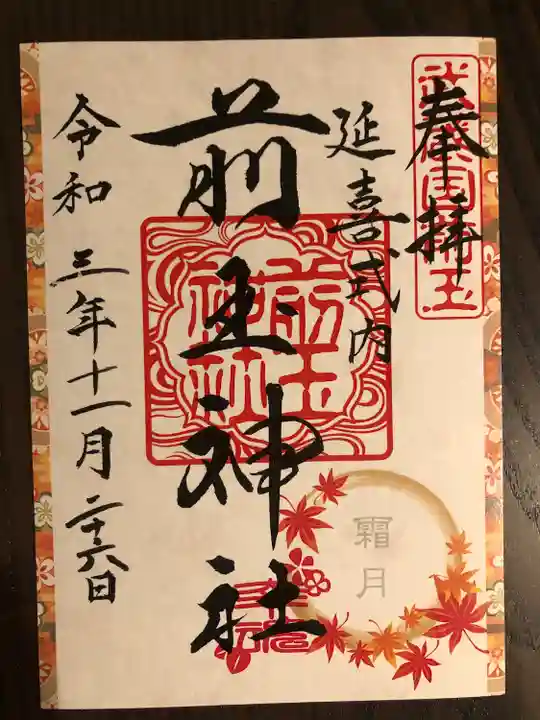 奉拝
武蔵国埼玉
延喜式内
前玉神社
前玉
神社
霜月
令和三年十一月二十六日